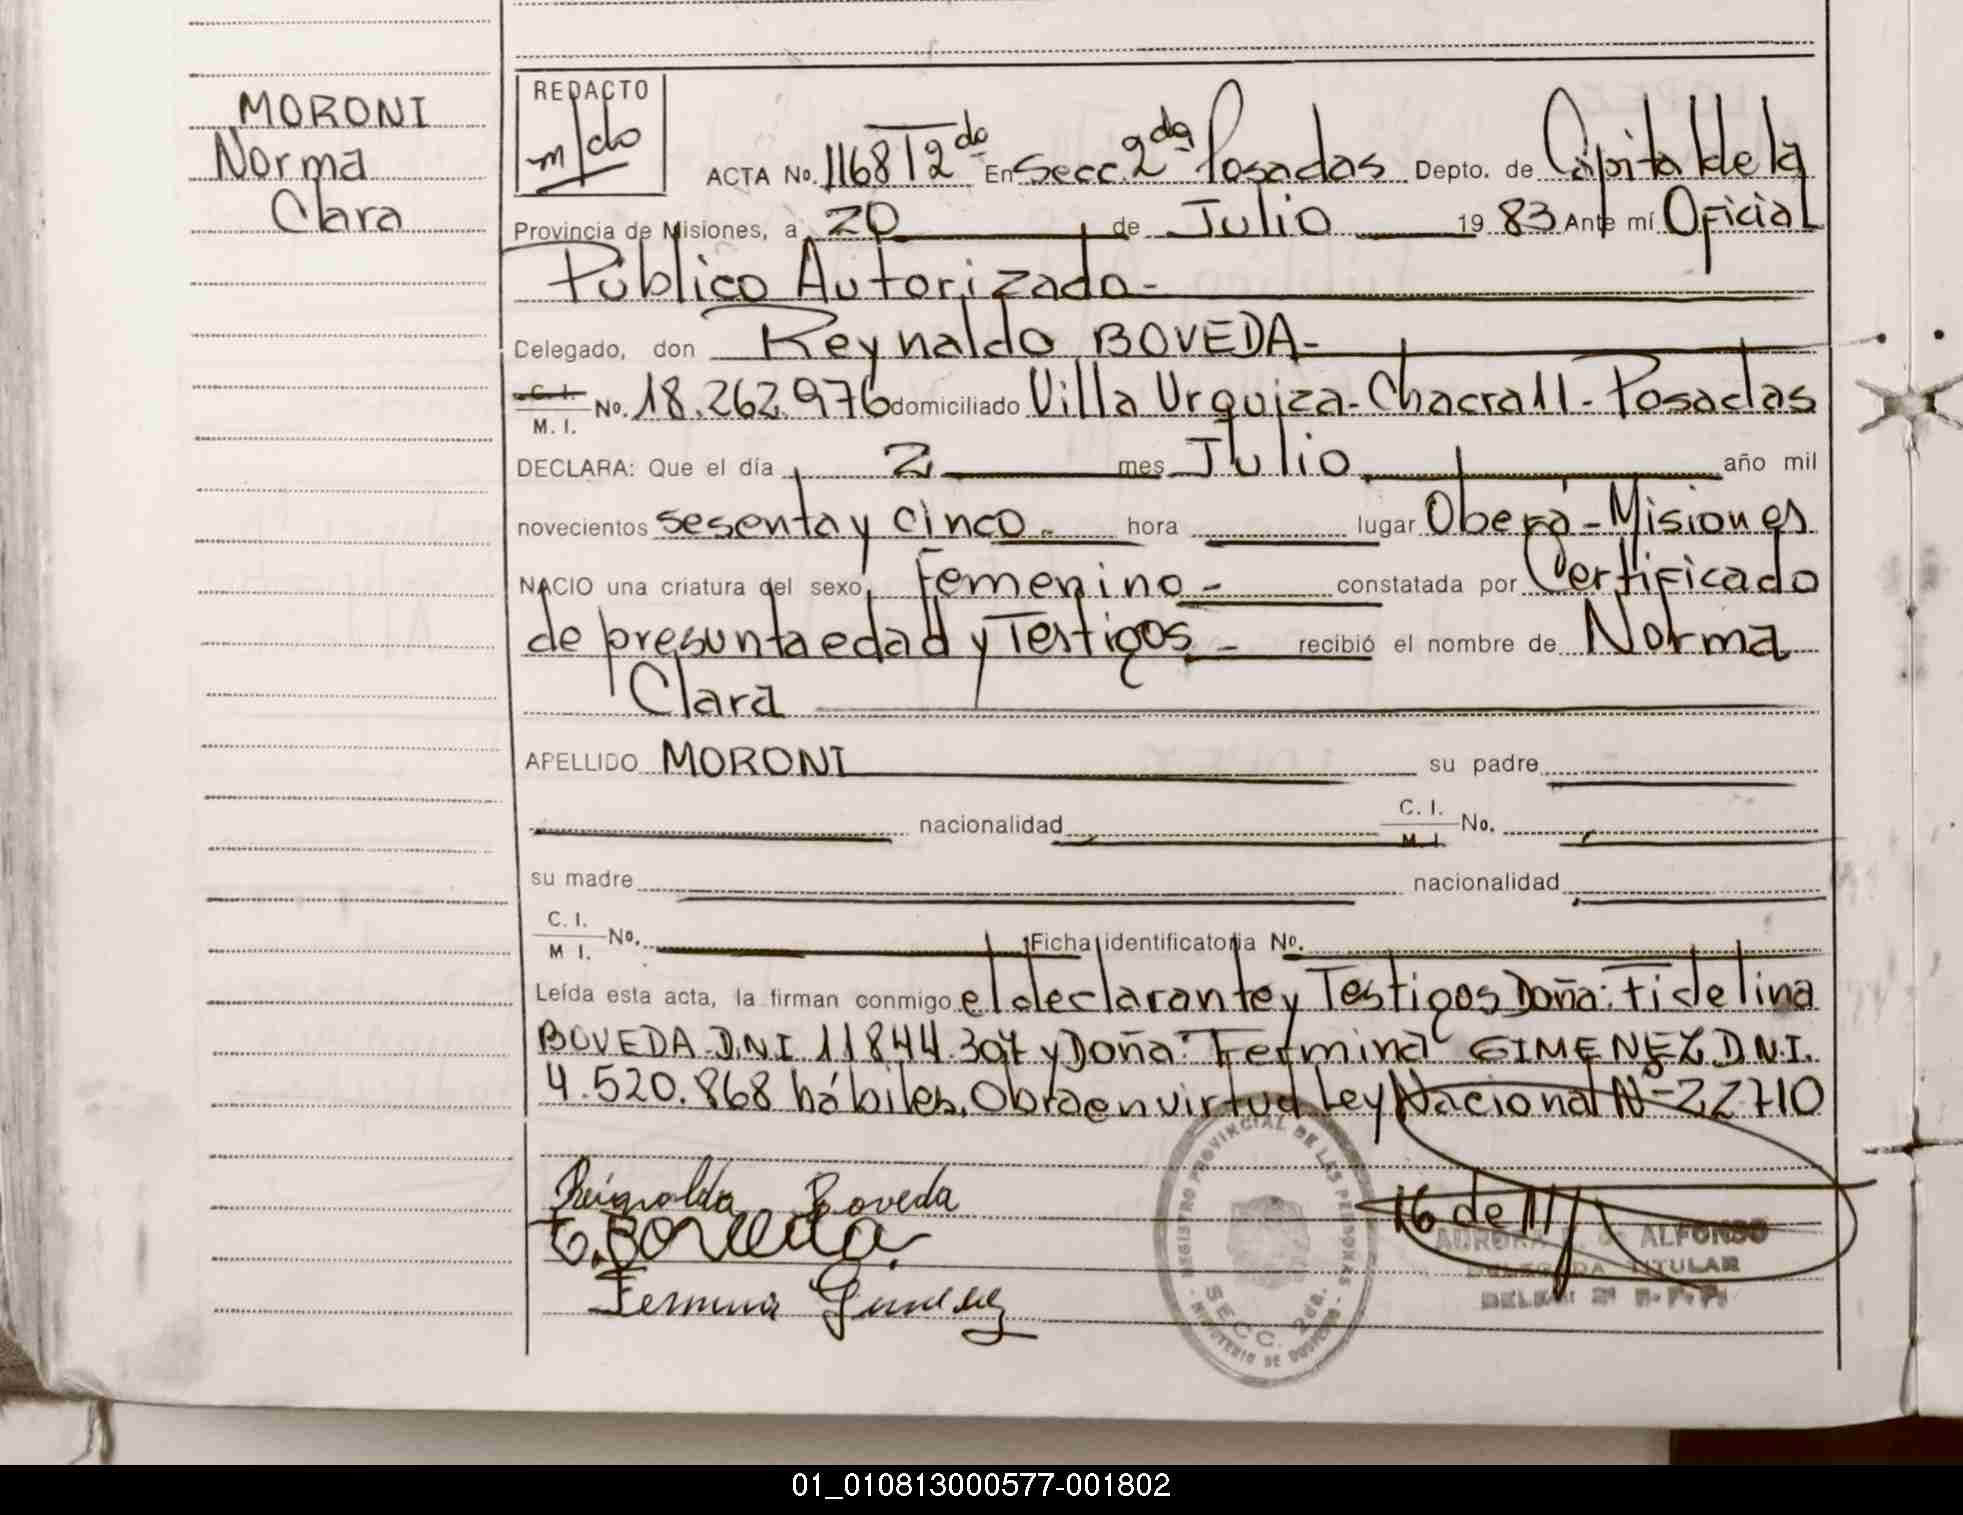 MORONI
Norma
Clara
REDACTO
m/do
ACTA No. 1168 T 2do En Secc. 2da Posadas Depto. de Capital de la
Provincia de Misiones, a 20 de Julio 1983 Ante mí Oficial
Público Autorizado-
Delegado, don Reynaldo BOVEDA-
C. I. / M. I. No. 18.262.976 domiciliado Villa Urquiza-Chacra 11-Posadas
DECLARA: Que el día 2 mes Julio año mil
novecientos sesenta y cinco.- hora lugar Oberá-Misiones
NACIO una criatura del sexo Femenino- constatada por Certificado
de presunta edad y Testigos- recibió el nombre de Norma
Clara
APELLIDO MORONI su padre
nacionalidad C. I. / M. I. No.
su madre nacionalidad
C. I. / M. I. No. Ficha identificatoria No.
Leída esta acta, la firman conmigo el declarante y Testigos Doña: Fidelina
BOVEDA-D.N.I. 11844.307 y Doña: Fermina GIMENEZ D.N.I.
4.520.868 hábiles. Obra en virtud Ley Nacional Nº 22710
Boveda
F. Boveda
Fermina Gimenez
REGISTRO PROVINCIAL DE LAS PERSONAS
SECC. 2da.
MINISTERIO DE GOBIERNO
16 de
AURORA de ALFONSO
DELEGADA TITULAR
01_010813000577-001802